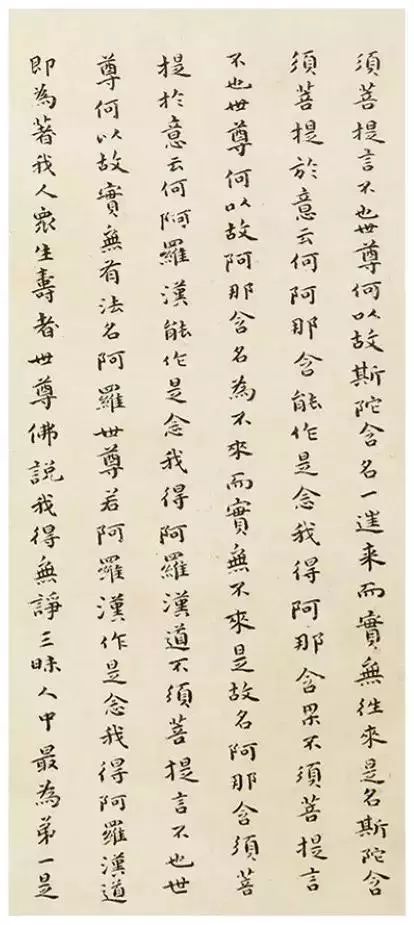 須菩提言不也世尊何以故斯陀含名一往来而實無往来是名斯陀含
須菩提於意云何阿那含能作是念我得阿那含果不須菩提言
不也世尊何以故阿那含名為不來而實無不來是故名阿那含須菩
提於意云何阿羅漢能作是念我得阿羅漢道不須菩提言不也世
尊何以故實無有法名阿羅世尊若阿羅漢作是念我得阿羅漢道
即為著我人衆生壽者世尊佛說我得無諍三昧人中最為第一是